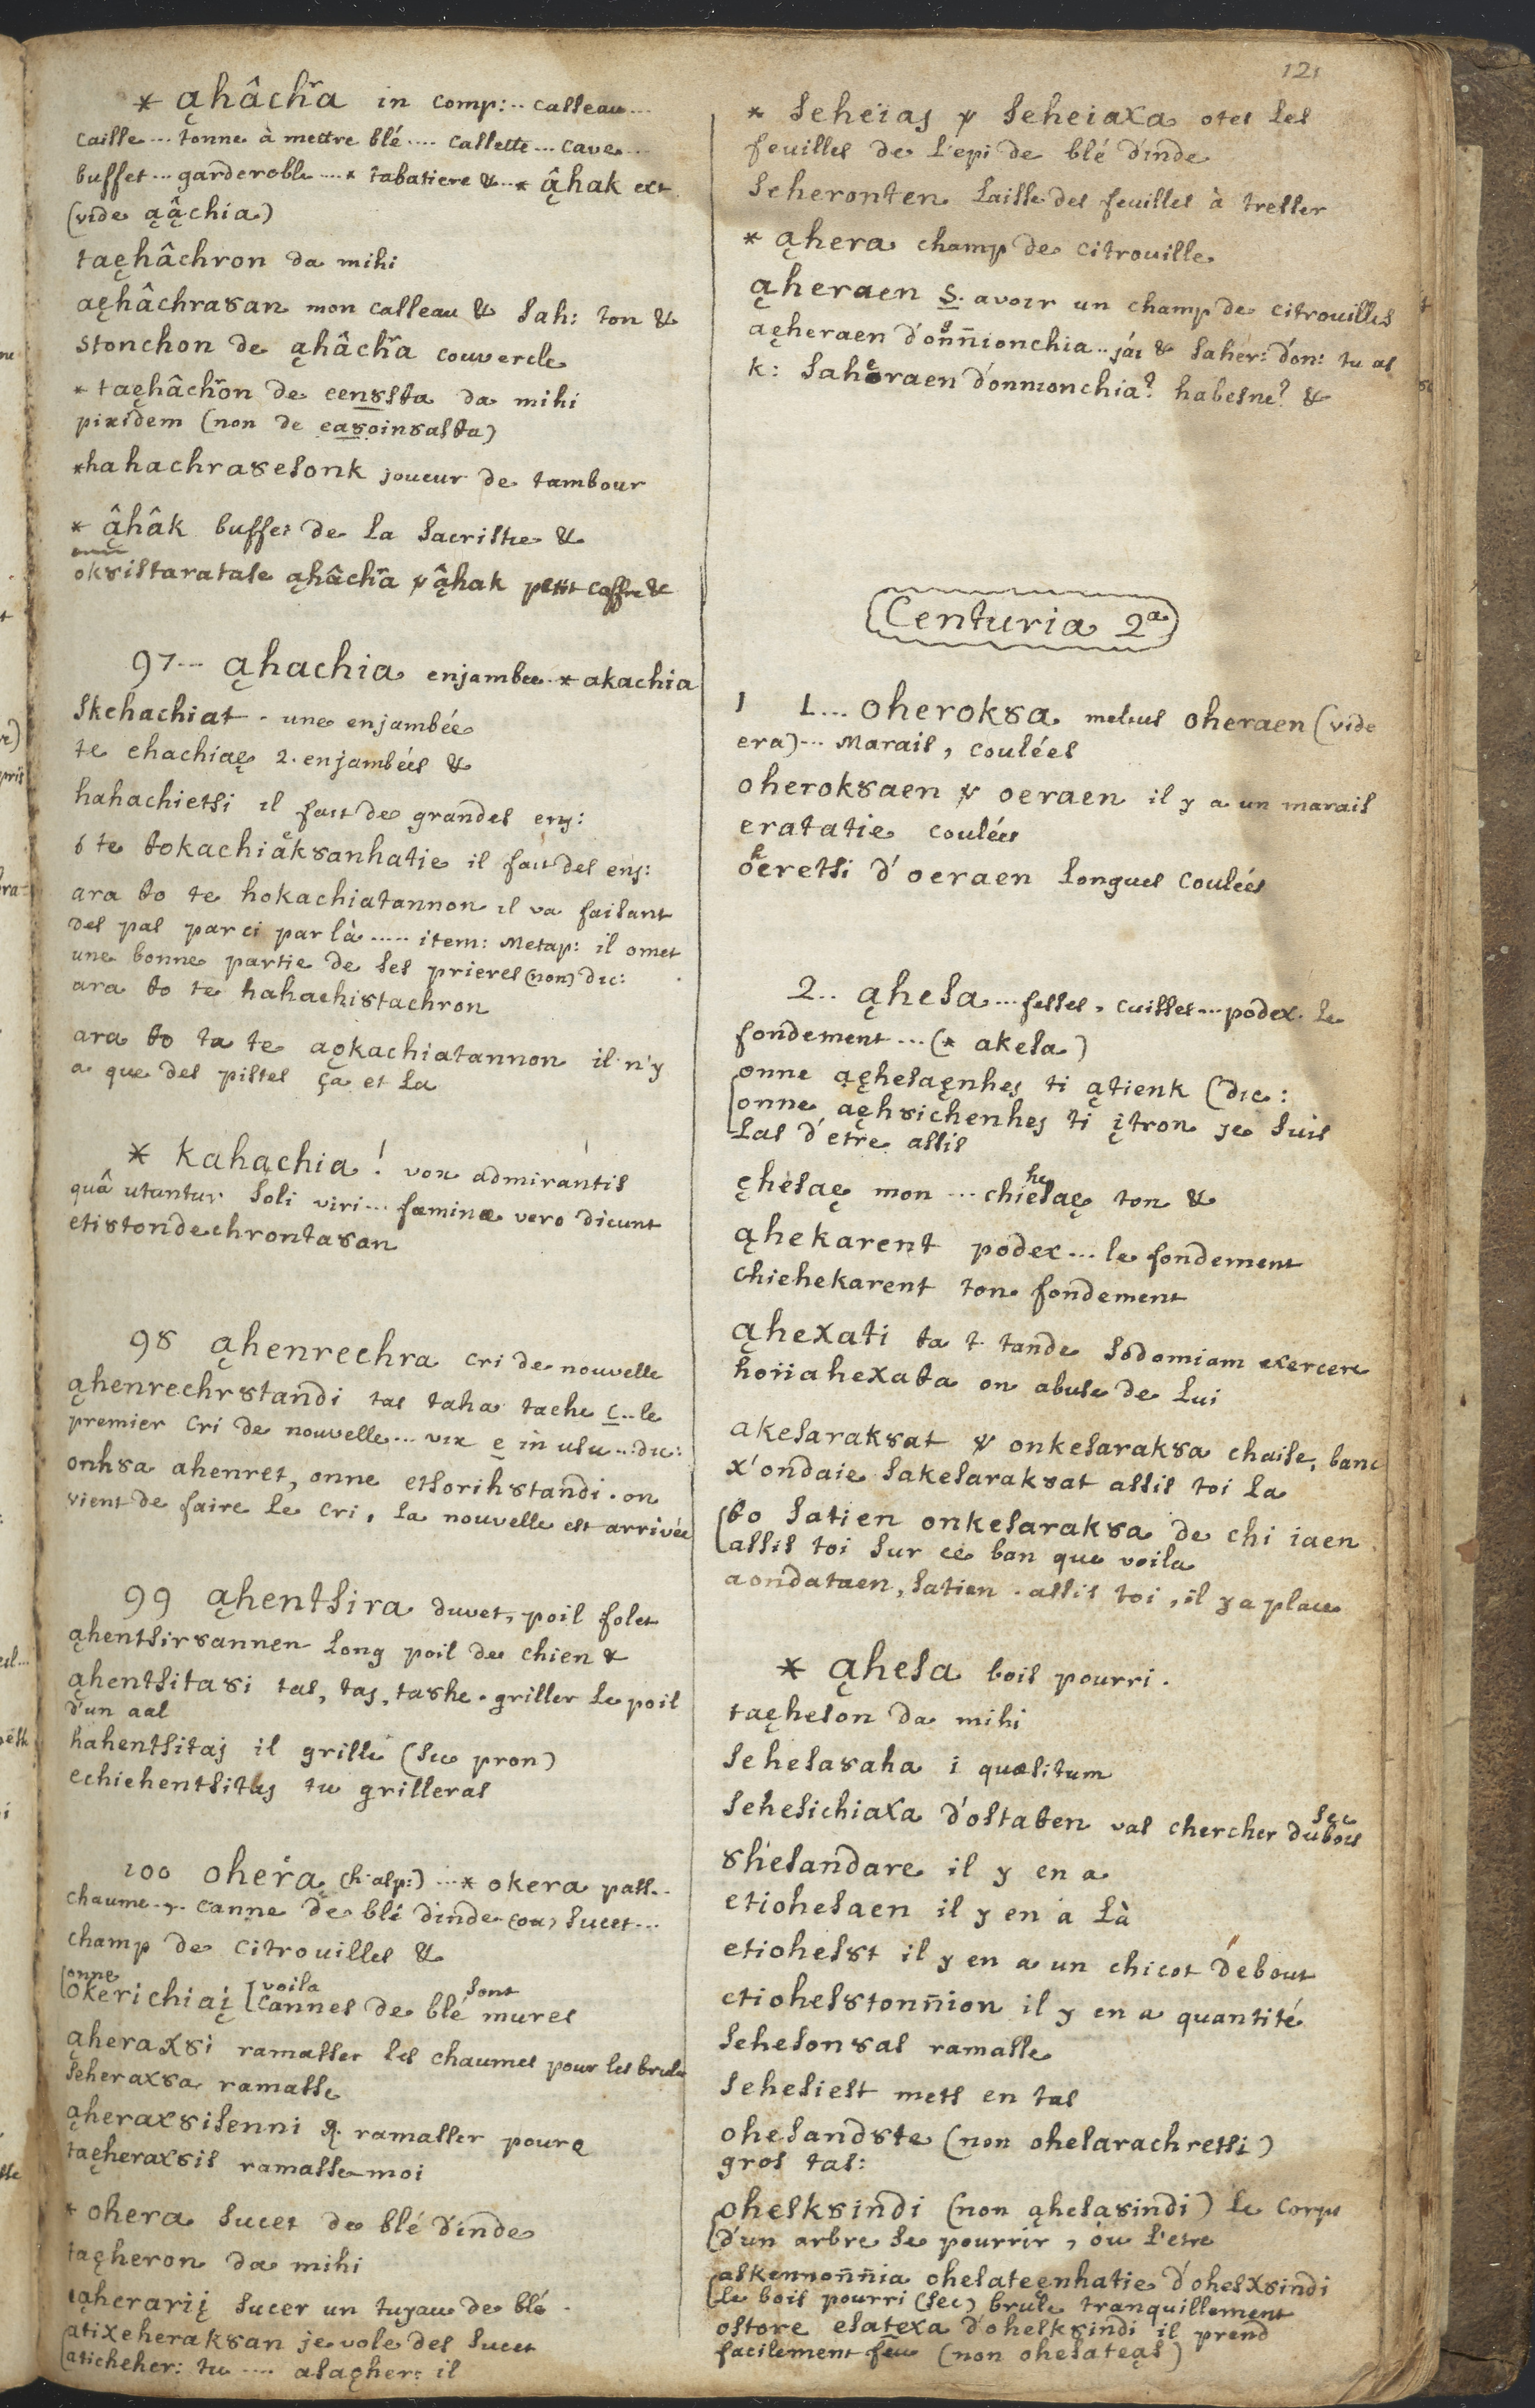 121
* ąhâchr̃a in comp: .. casseau ...
caisse ... tonne à mettre blé .... cassette ... cave ...
buffet ... garderobbe .... * tabatiere & .. * ą̂hak ext
(vide ąą̂chia)
taęhâchron da mihi
aęhâchra8an mon casseau & sah: ton &
stonchon de ąhâchr̃a couvercle
* taęhâchr̃on de een8sta da mihi
pixidem (non de ea8oin8asta)
* hahachra8esonk joueur de tambour
* ą̂hâk buffet de la sacristie &
ok8istaratase ąhâchr̃a ą̂hak petit coffre &
97 ... ąhachia enjambee .. * akachia
skehachiat . une enjambée
te ehachiaę 2. enjambées &
hahachietsi il fait de grandes enj:
ara θo te hokachiatannon il va faisant
des pas par ci par là ..... item: Metap: il omet
une bonne partie de ses prieres (non) dic:
ara θo te hahachi8tachron
ara θo ta te aǫkachiatannon il n'y
a que des pistes ça et la
* kahachia! vox admirantis
quâ utuntur soli viri ... fæminæ vero dicunt
eti8tondechronta8an
98 ąhenrechra cri de nouvelle
ąhenrechr8tandi tas taha tache c .. le
premier cri de nouvelle ... vix e in usu ... dic:
onh8a ahenret, onne etsorih8tandi . on
vient de faire le cri, la nouvelle est arrivée
99 ąhentsira duvet, poil folet
ąhentsir8annen long poil de chien &
ąhentsita8i tas, taj, ta8he . griller le poil
d'un aal
hahentsitaj il grille (sic pron)
echiehentsitaj tu grilleras
100 oher̃a (h asp:) ... * okera pass..
chaume .. canne de blé dinde (ou) sucet ...
champ de citrouilles &
onne voila sont
okerichiaį cannes de blé mures
ąherax8i ramasser les chaumes pour les bruler
seherax8a ramasse
ąherax8isenni ramasser pour ę
taęherax8is ramasse moi
* ohera sucet de blé d'inde
taęheron da mihi
ąherarįį sucer un tuyau de blé
atixeherak8an je vole des sucet
aticheher: tu .... asaęher: il
* seheïaj seheiaxa oter les
feuilles de l'epi de blé d'inde
seheronten laisse des feuilles à tresser
* ąhera champ de citrouille
ąheraen S. avoir un champ de citrouilles
aęheraen d'onn̄ionchia .. j'ai & saher: d'on: tu as
k: saheraen d'onnionchia? habesne? &
Centuria 2ª
1 1... oherok8a melius oheraen (vide
era) ... Marais, coulées
oherok8aen oeraen il y a un marais
eratatie coulées
oheretsi d'oeraen longues coulées
2 .. ąhesa ... fesses, cuisses ... podex. le
fondement ... (* akesa)
onne aęhesaęnhej ti ątienk (dic:
onne aęh8ichenhej ti įtron je suis
las d'etre assis
ęhesaę mon ... chiehesaę ton &
ąhekarent podex ... le fondement
chiehekarent ton fondement
ąhexati θa t tande sodomiam exercere
hoiiahexaθa on abuse de lui
akesarak8at onkesarak8a chaise, banc
x'ondaie sakesarak8at assis toi la
θo satien onkesarak8a de chi iaen
assis toi sur ce ban que voila
aondataen, satien . assis toi, il y a place
* ąhesa bois pourri .
taęheson da mihi
sehesa8aha i quæsitum
sehesichiaxa d'ostaθen vas chercher du bois sec
8hesandare il y en a
etiohesaen il y en a là
etiohes8t il y en a un chicot debout
etiohes8tonn̄ion il y en a quantité
seheson8as ramasse
sehesiest mets en tas
ohesand8ste (non ohesarachretsi)
gros tas:
ohesk8indi (non ąhesa8indi) le corps
d'un arbre se pourrir, ou l'etre
askennonn̄ia ohesateenhatie d'ohesx8indi
le bois pourri (sec) brule tranquillement
ostore esatexa d'ohesk8indi il prend
facilement feu (non ohesateąs)